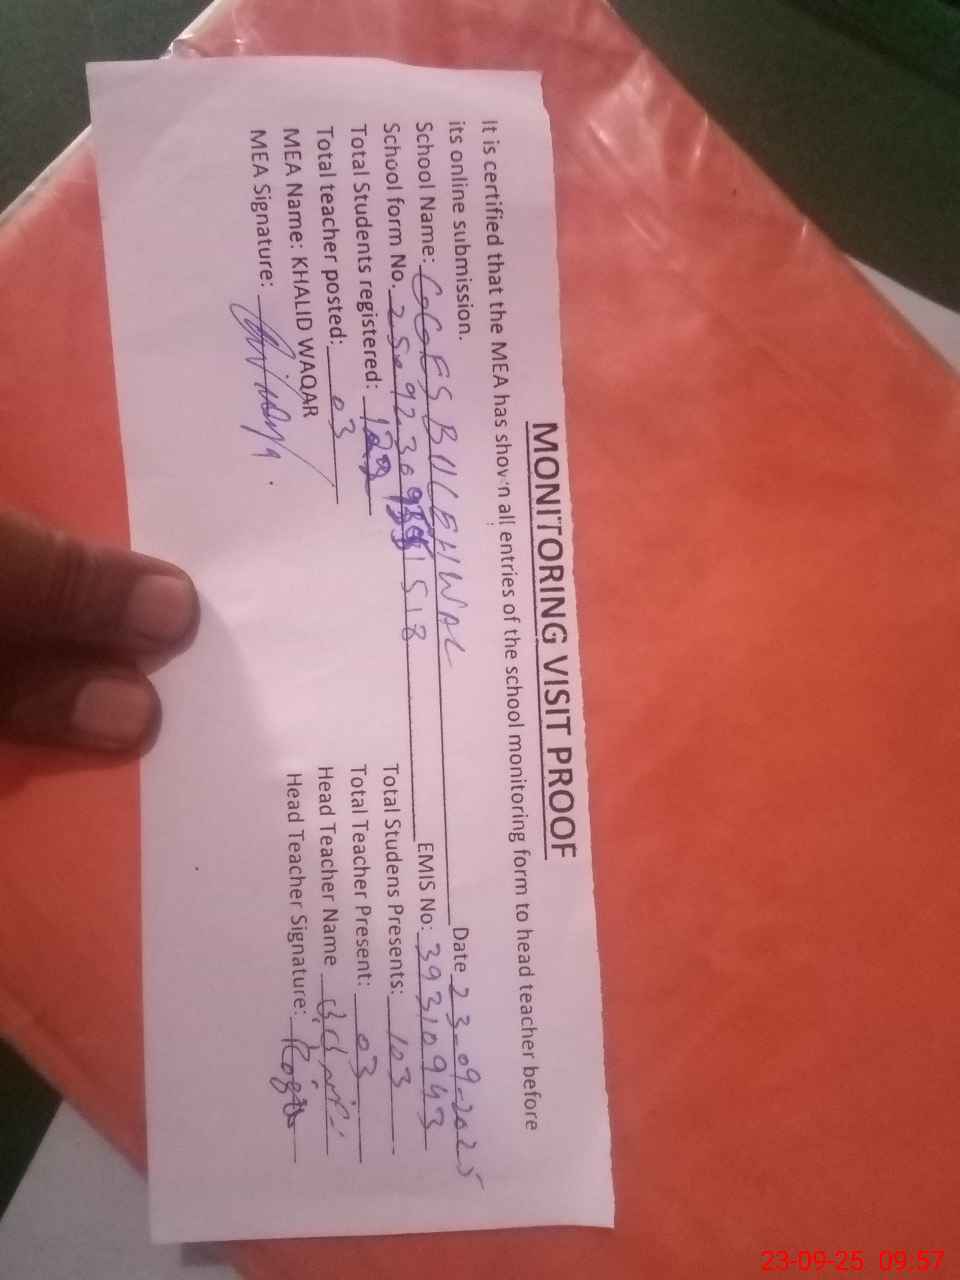 MONITORING VISIT PROOF
It is certified that the MEA has shown all entries of the school monitoring form to head teacher before
its online submission.
School Name: Date 23-09-2025
School form No. EMIS No: 39310943
Total Students registered: Total Studens Presents: 103
Total teacher posted: 03 Total Teacher Present: 03
MEA Name: KHALID WAQAR Head Teacher Name
MEA Signature: Head Teacher Signature:
23-09-25 09:57